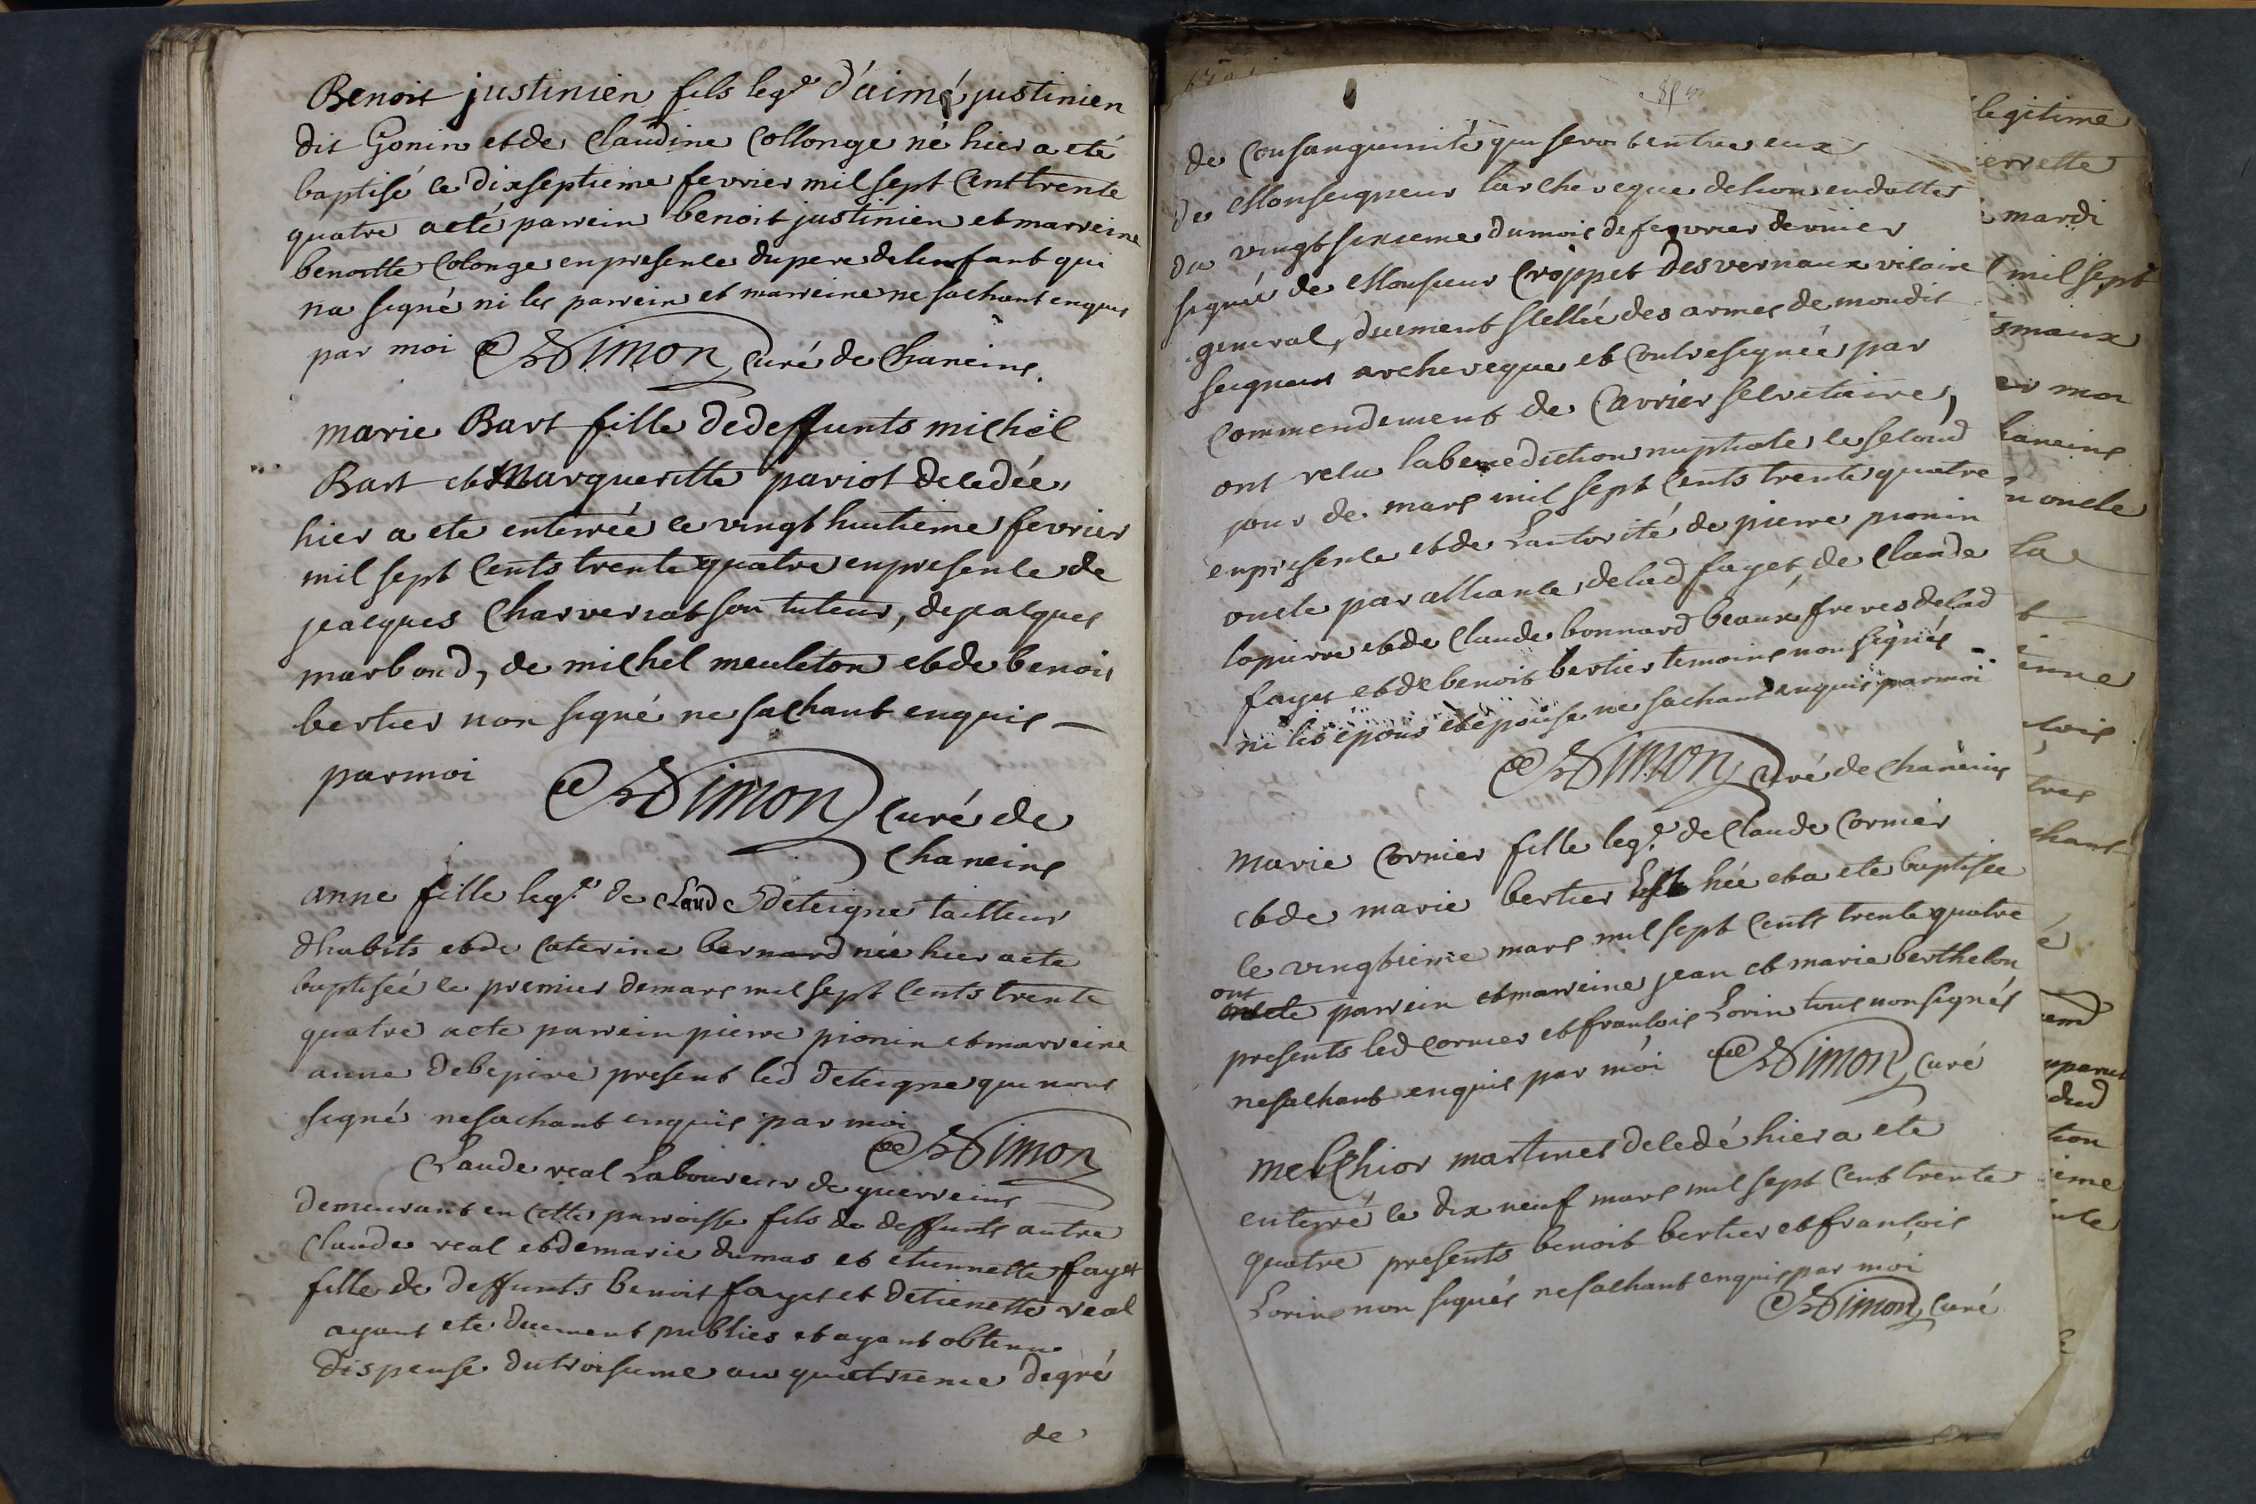 Benoit justinien fils leg.e d'aimé justinien
dit Gonin et de Claudine Collonge né hier a eté
baptisé ce dixseptieme fevrier mil sept cent trente
quatre a eté parrein benoit justinien et marreine
benoitte Colonge en presence du pere de lenfant qui
na signé ni les parrein et marreine ne sachant enquis
par moi Simon curé de Chaneins.
marie Bart fille de deffunts michel
Bart et Margueritte pariot decedée
hier a ete enterrée ce vingt huitieme fevrier
mil sept cents trente quatre en presence de
jacques Charveriat son tuteur, de jacques
marbond, de michel meuleton et de benois
bertier non signé ne sachant enquis
par moi Simon curé de
Chaneins
anne fille leg.e de Claude deteigne tailleur
dhabits et de Caterine bernard née hier a ete
baptiseé le premier de mars mil sept cents trente
quatre a ete parrein pierre pionin et marreine
anne presens led deteigne qui nous
signé ne sachant enquis par moi
Simon
Claude real Laboureur de guerreins
demeurant en cette parroisse fils de deffunts autre
Claude real et de marie dumas et etiennette fayet
fille de deffunts benoit fayet et detienette real
ayant ete duement publies et ayant obtenu
dispense du troisieme au quatrieme degré
de
de Consanguinité qui seroit entre eux
de Monseigneur larcheveque de lion en datte
du vingt sixieme du mois de fevrier dernier
signé de Monsieur Croppet desvernaux vicaire
general, duement scellée des armes de mondit
seigneur archeveque et contresignée par
commendement de Carrier secretaire,
ont recu la benediction nuptiale le second
jour de mars mil sept cents trente quatre
en presence et de Lautorité de pierre pionin
oncle par alliance de lad fayet, de Claude
lapierre et de Claude bonnard beaux freres de lad
fayet et de benoit bertier temoins non signés
ni les epous et epouse ne sachant enquis par moi
Simon curé de chaneins
Marie Cornier fille leg.e de Claude Cornier
et de marie bertier née et a ete baptisée
le vingtieme mars mil sept cents trente quatre
ont
ete parrein et marreine jean et marie berthelon
presents led Cornier et francois Lorin tous non signés
ne sachant enquis par moi Simon curé
Melchior martinet decedé hier a ete
enterré le dix neuf mars mil sept cent trente
quatre presents benoit bertier et francois
Lorin non signés ne sachant enquis par moi
Simon curé
legitime
mardi
mil sept
chaneins
oncle
la